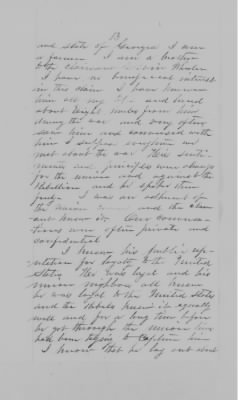 13
and state of Georgia I am
a farmer I am a brother
to the claimant
I have no beneficial interest
in this claim I have known
him all my life and lived
about eight miles from him
during the war and very often
saw him and conversed with
him I suppose every time we
met about the war His senti-
ments and principles were always
for the union and against the
Rebellion and he spoke them
freely I was an adherent of
the Union cause and the claim-
ant knew it Our conversa-
tions were often private and
confidential
I know his public rep-
utation for loyalty to the United
States He was loyal and his
union neighbors all knew
he was loyal to the United States
and the Rebels knew it equally
well and for a long time before
he got through the union lines
had been trying to capture him
I know that he lay out and